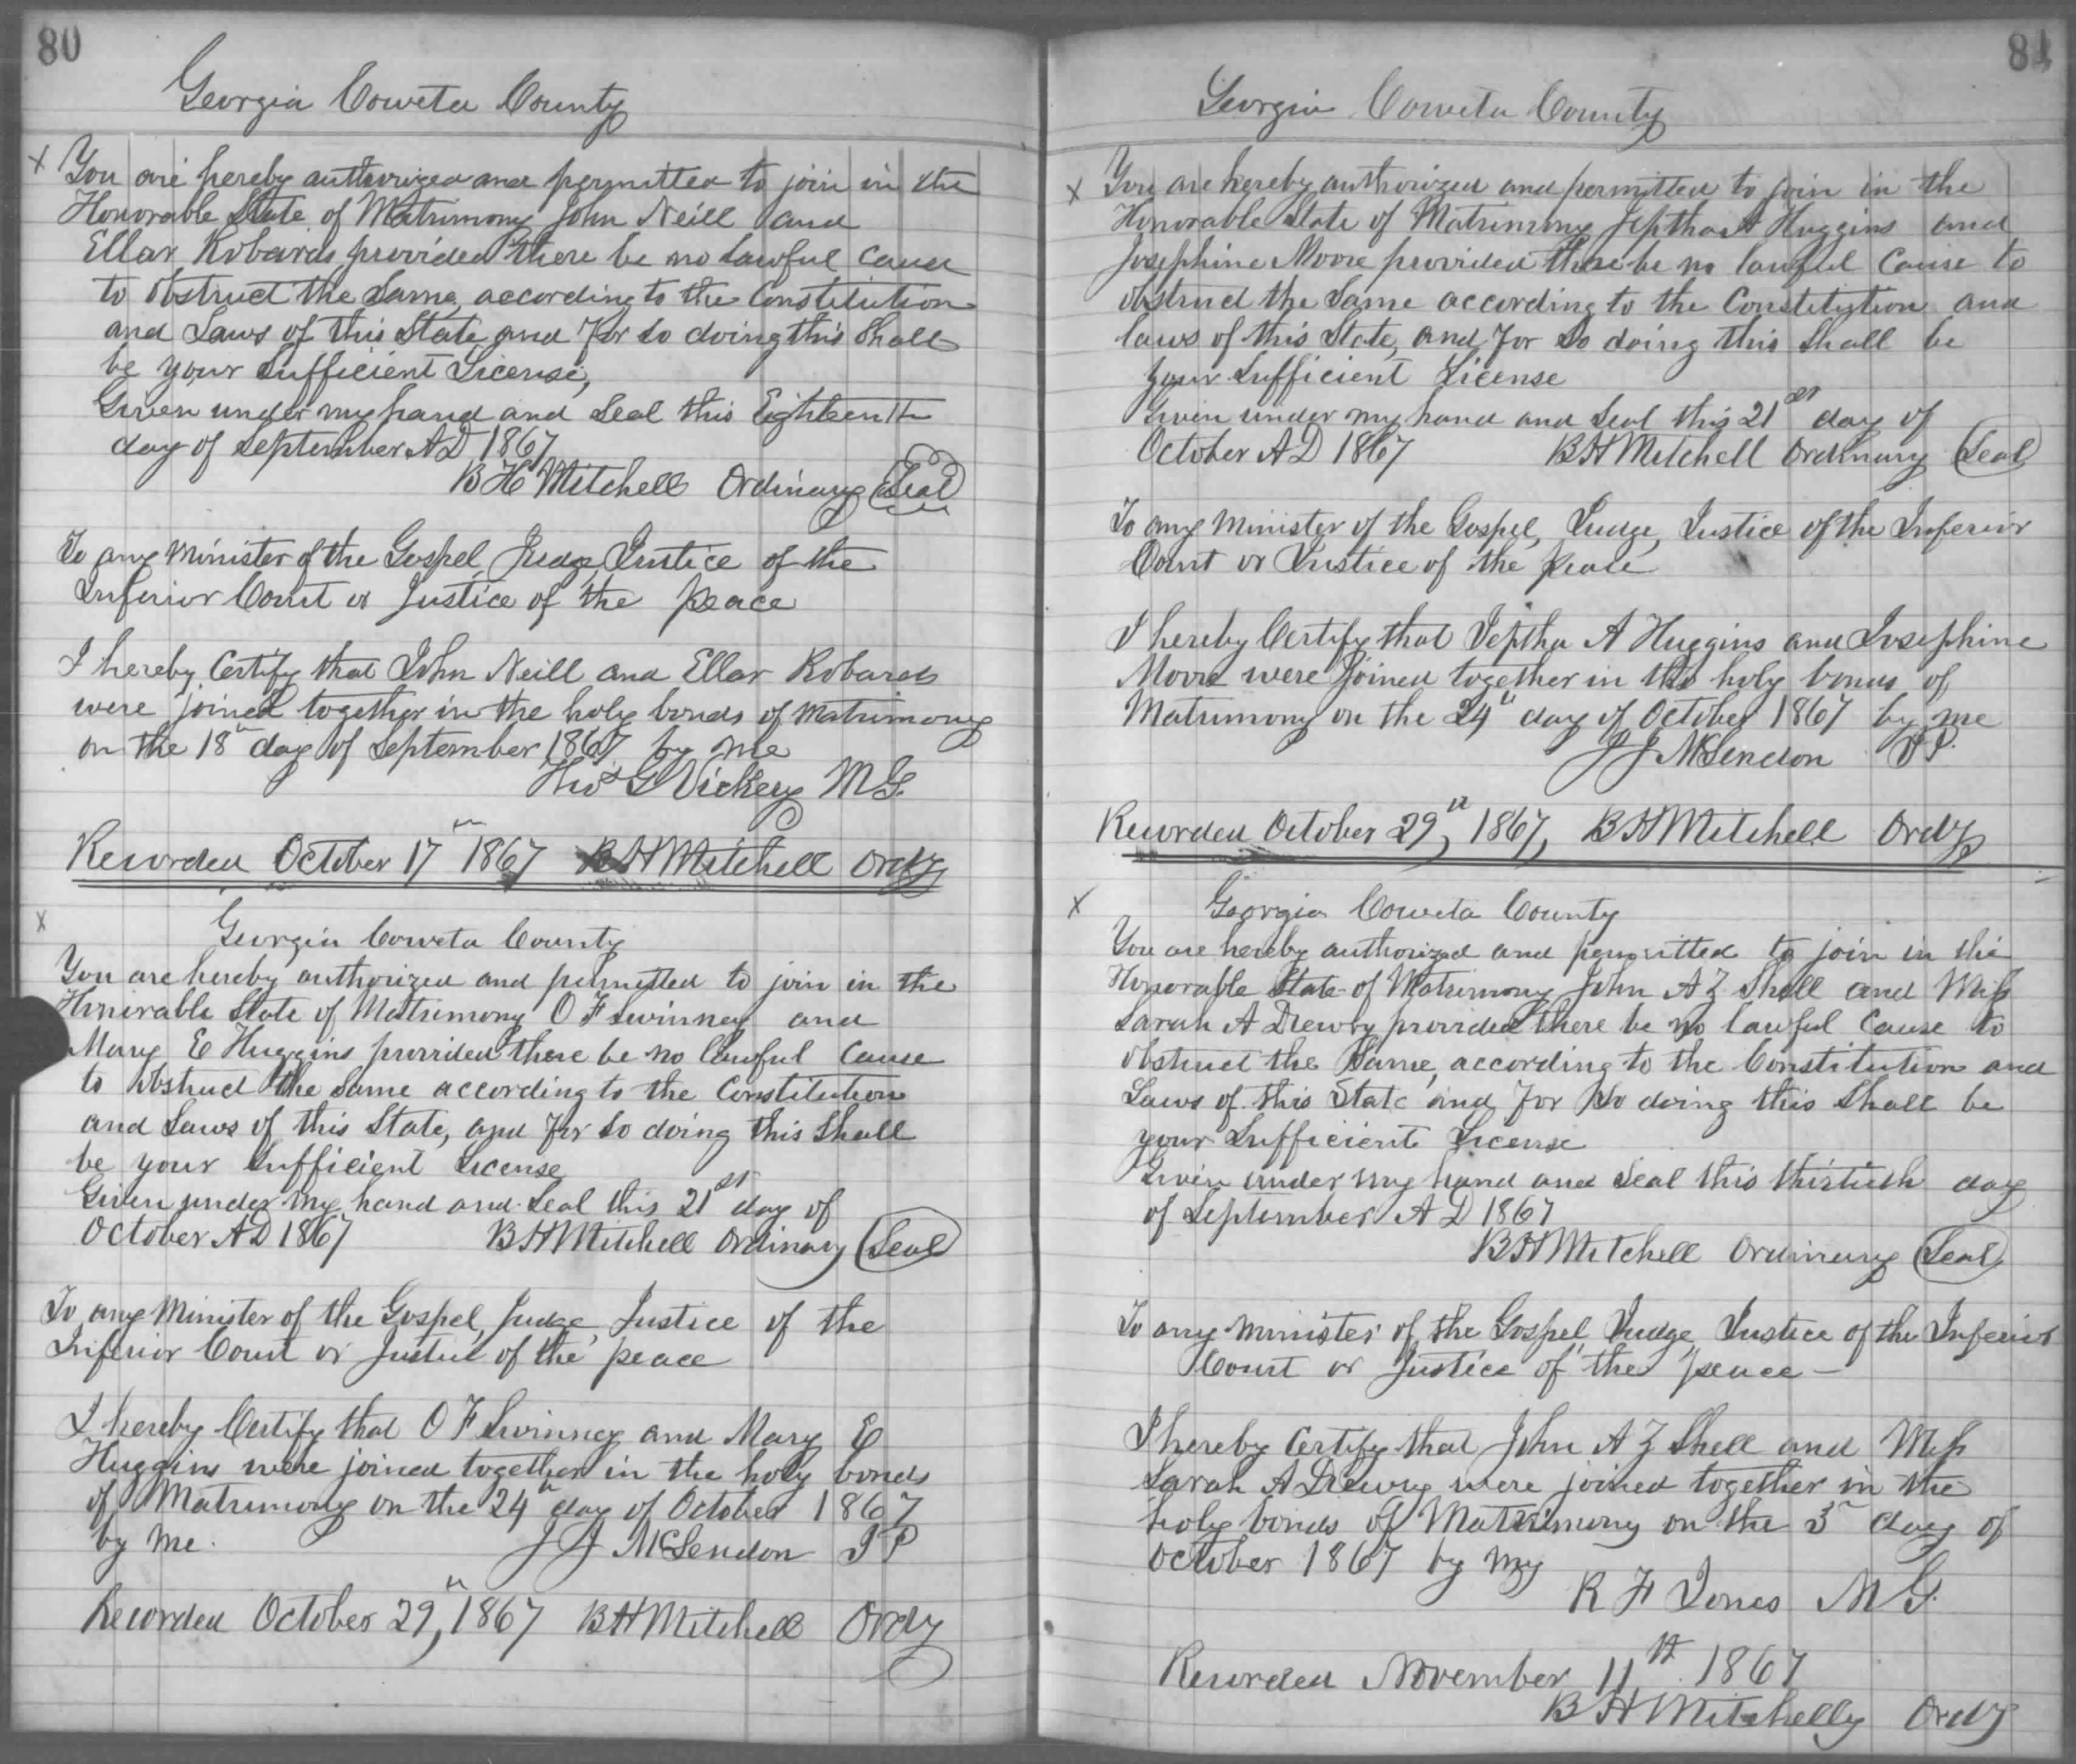 80
Georgia Coweta County
X You are hereby authorized and permitted to join in the
Honorable State of Matrimony John Neill and
Ellar Robards provided there be no lawful cause
to obstruct the Same, according to the Constitution
and Laws of this State, and for so doing this Shall
be your Sufficient License,
Given under my hand and Seal this Eighteenth
day of September AD 1867
B H Mitchell Ordinary Seal
To any Minister of the Gospel, Judge, Justice of the
Inferior Court or Justice of the peace
I hereby Certify that John Neill and Ellar Robards
were joined together in the holy bonds of Matrimony
on the 18th day of September 1867 by me
Thos G Vickery M G.
Recorded October 17th 1867 B H Mitchell Ordy
X
Georgia Coweta County
You are hereby authorized and permitted to join in the
Honorable State of Matrimony O F Swinney and
Mary E Huggins provided there be no lawful cause
to obstruct the Same according to the Constitution
and Laws of this State, and for So doing this Shall
be your Sufficient License
Given under my hand and Seal this 21st day of
October AD 1867 B H Mitchell Ordinary Seal
To any Minister of the Gospel, Judge, Justice of the
Inferior Court or Justice of the peace
I hereby Certify that O F Swinney and Mary E
Huggins were joined together in the holy bonds
of Matrimony on the 24th day of October 1867
by me. J J McLendon J P
Recorded October 29th, 1867 B H Mitchell Ordy
81
Georgia Coweta County
X You are hereby authorized and permitted to join in the
Honorable State of Matrimony Jeptha A Huggins and
Josephine Moore provided there be no lawful Cause to
obstruct the Same according to the Constitution and
laws of this State, and for So doing this Shall be
your Sufficient License
Given under my hand and Seal this 21st day of
October AD 1867 B H Mitchell Ordinary Seal
To any Minister of the Gospel, Judge, Justice of the Inferior
Court or Justice of the peace
I hereby Certify that Jeptha A Huggins and Josephine
Moore were joined together in the holy bonds of
Matrimony on the 24th day of October 1867 by me
J J McLendon J P.
Recorded October 29th, 1867, B H Mitchell Ordy
X Georgia Coweta County
You are hereby authorized and permitted to join in the
Honorable State of Matrimony John A Z Shell and Miss
Sarah A Drewry provided there be no lawful Cause to
obstruct the Same, according to the Constitution and
Laws of this State and for So doing this Shall be
your Sufficient License
Given under my hand and Seal this thirtieth day
of September AD 1867
B H Mitchell Ordinary Seal
To any minister of the Gospel, Judge, Justice of the Inferior
Court or Justice of the peace —
I hereby Certify that John A Z Shell and Miss
Sarah A Drewry were joined together in the
holy bonds of Matrimony on the 3 day of
October 1867 by my
R F Jones M G.
Recorded November 11th 1867
B H Mitchell Ordy